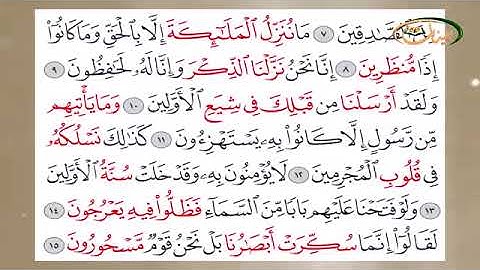 ٱلصَّٰدِقِينَ ٧ مَا نُنَزِّلُ ٱلْمَلَٰٓئِكَةَ إِلَّا بِٱلْحَقِّ وَمَا كَانُوٓا۟
إِذًا مُّنظَرِينَ ٨ إِنَّا نَحْنُ نَزَّلْنَا ٱلذِّكْرَ وَإِنَّا لَهُۥ لَحَٰفِظُونَ ٩
وَلَقَدْ أَرْسَلْنَا مِن قَبْلِكَ فِى شِيَعِ ٱلْأَوَّلِينَ ١٠ وَمَا يَأْتِيهِم
مِّن رَّسُولٍ إِلَّا كَانُوا۟ بِهِۦ يَسْتَهْزِءُونَ ١١ كَذَٰلِكَ نَسْلُكُهُۥ
فِى قُلُوبِ ٱلْمُجْرِمِينَ ١٢ لَا يُؤْمِنُونَ بِهِۦ وَقَدْ خَلَتْ سُنَّةُ ٱلْأَوَّلِينَ
١٣ وَلَوْ فَتَحْنَا عَلَيْهِم بَابًا مِّنَ ٱلسَّمَآءِ فَظَلُّوا۟ فِيهِ يَعْرُجُونَ ١٤
لَقَالُوٓا۟ إِنَّمَا سُكِّرَتْ أَبْصَٰرُنَا بَلْ نَحْنُ قَوْمٌ مَّسْحُورُونَ ١٥